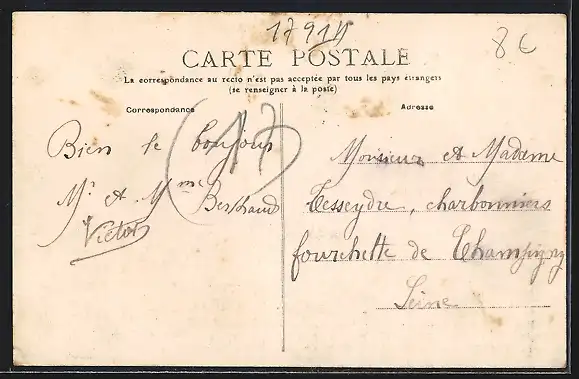 17914
8€
CARTE POSTALE
La correspondance au recto n'est pas acceptée par tous les pays étrangers
(se renseigner à la poste)
Correspondance
Adresse
(17)
Bien le bonjour
Mr et Mme Berthaud
Victor
Monsieur et Madame
Tesseydre, charbonniers
fourchette de Champigny
Seine